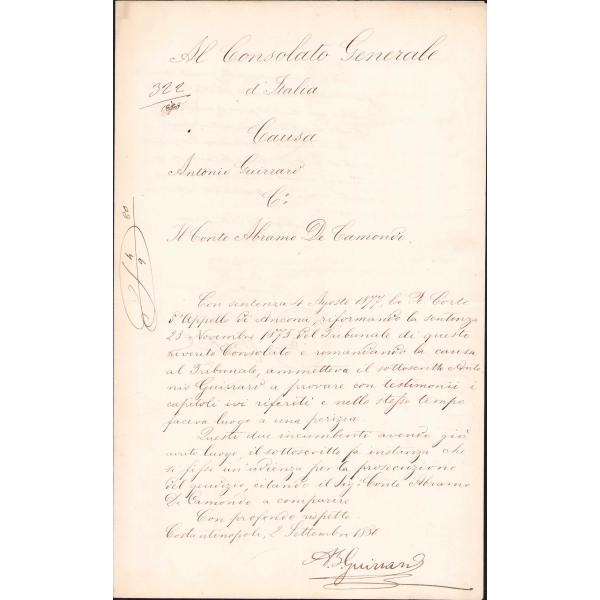 Al Consolato Generale
d'Italia
322
Causa
Antonio Guirrarò
C.º
Il Conte Abramo De Camondo.
Con sentenza 4 Agosto 1877, la R Corte
d'Appello di Ancona, riformando la sentenza
28 Novembre 1873 del Tribunale di questo
revereto Consolato e rimandando la causa
al Tribunale, ammetteva il sottoscritto Anto
nio Guirrarò a provare con testimonii i
capitoli ivi riferiti e nello stesso tempo
faceva luogo a una perizia.
Questi due incumbenti avendo già
avuto luogo, il sottoscritto fa instanza che
si fisse un'udienza per la prosecuzione
del giudizio, citando il Sigr. Conte Abramo
De Camondo a comparire.
Con profondo rispetto.
Costantinopoli, 2 Settembre 1880
A. B. Guirrarò
4/9 80